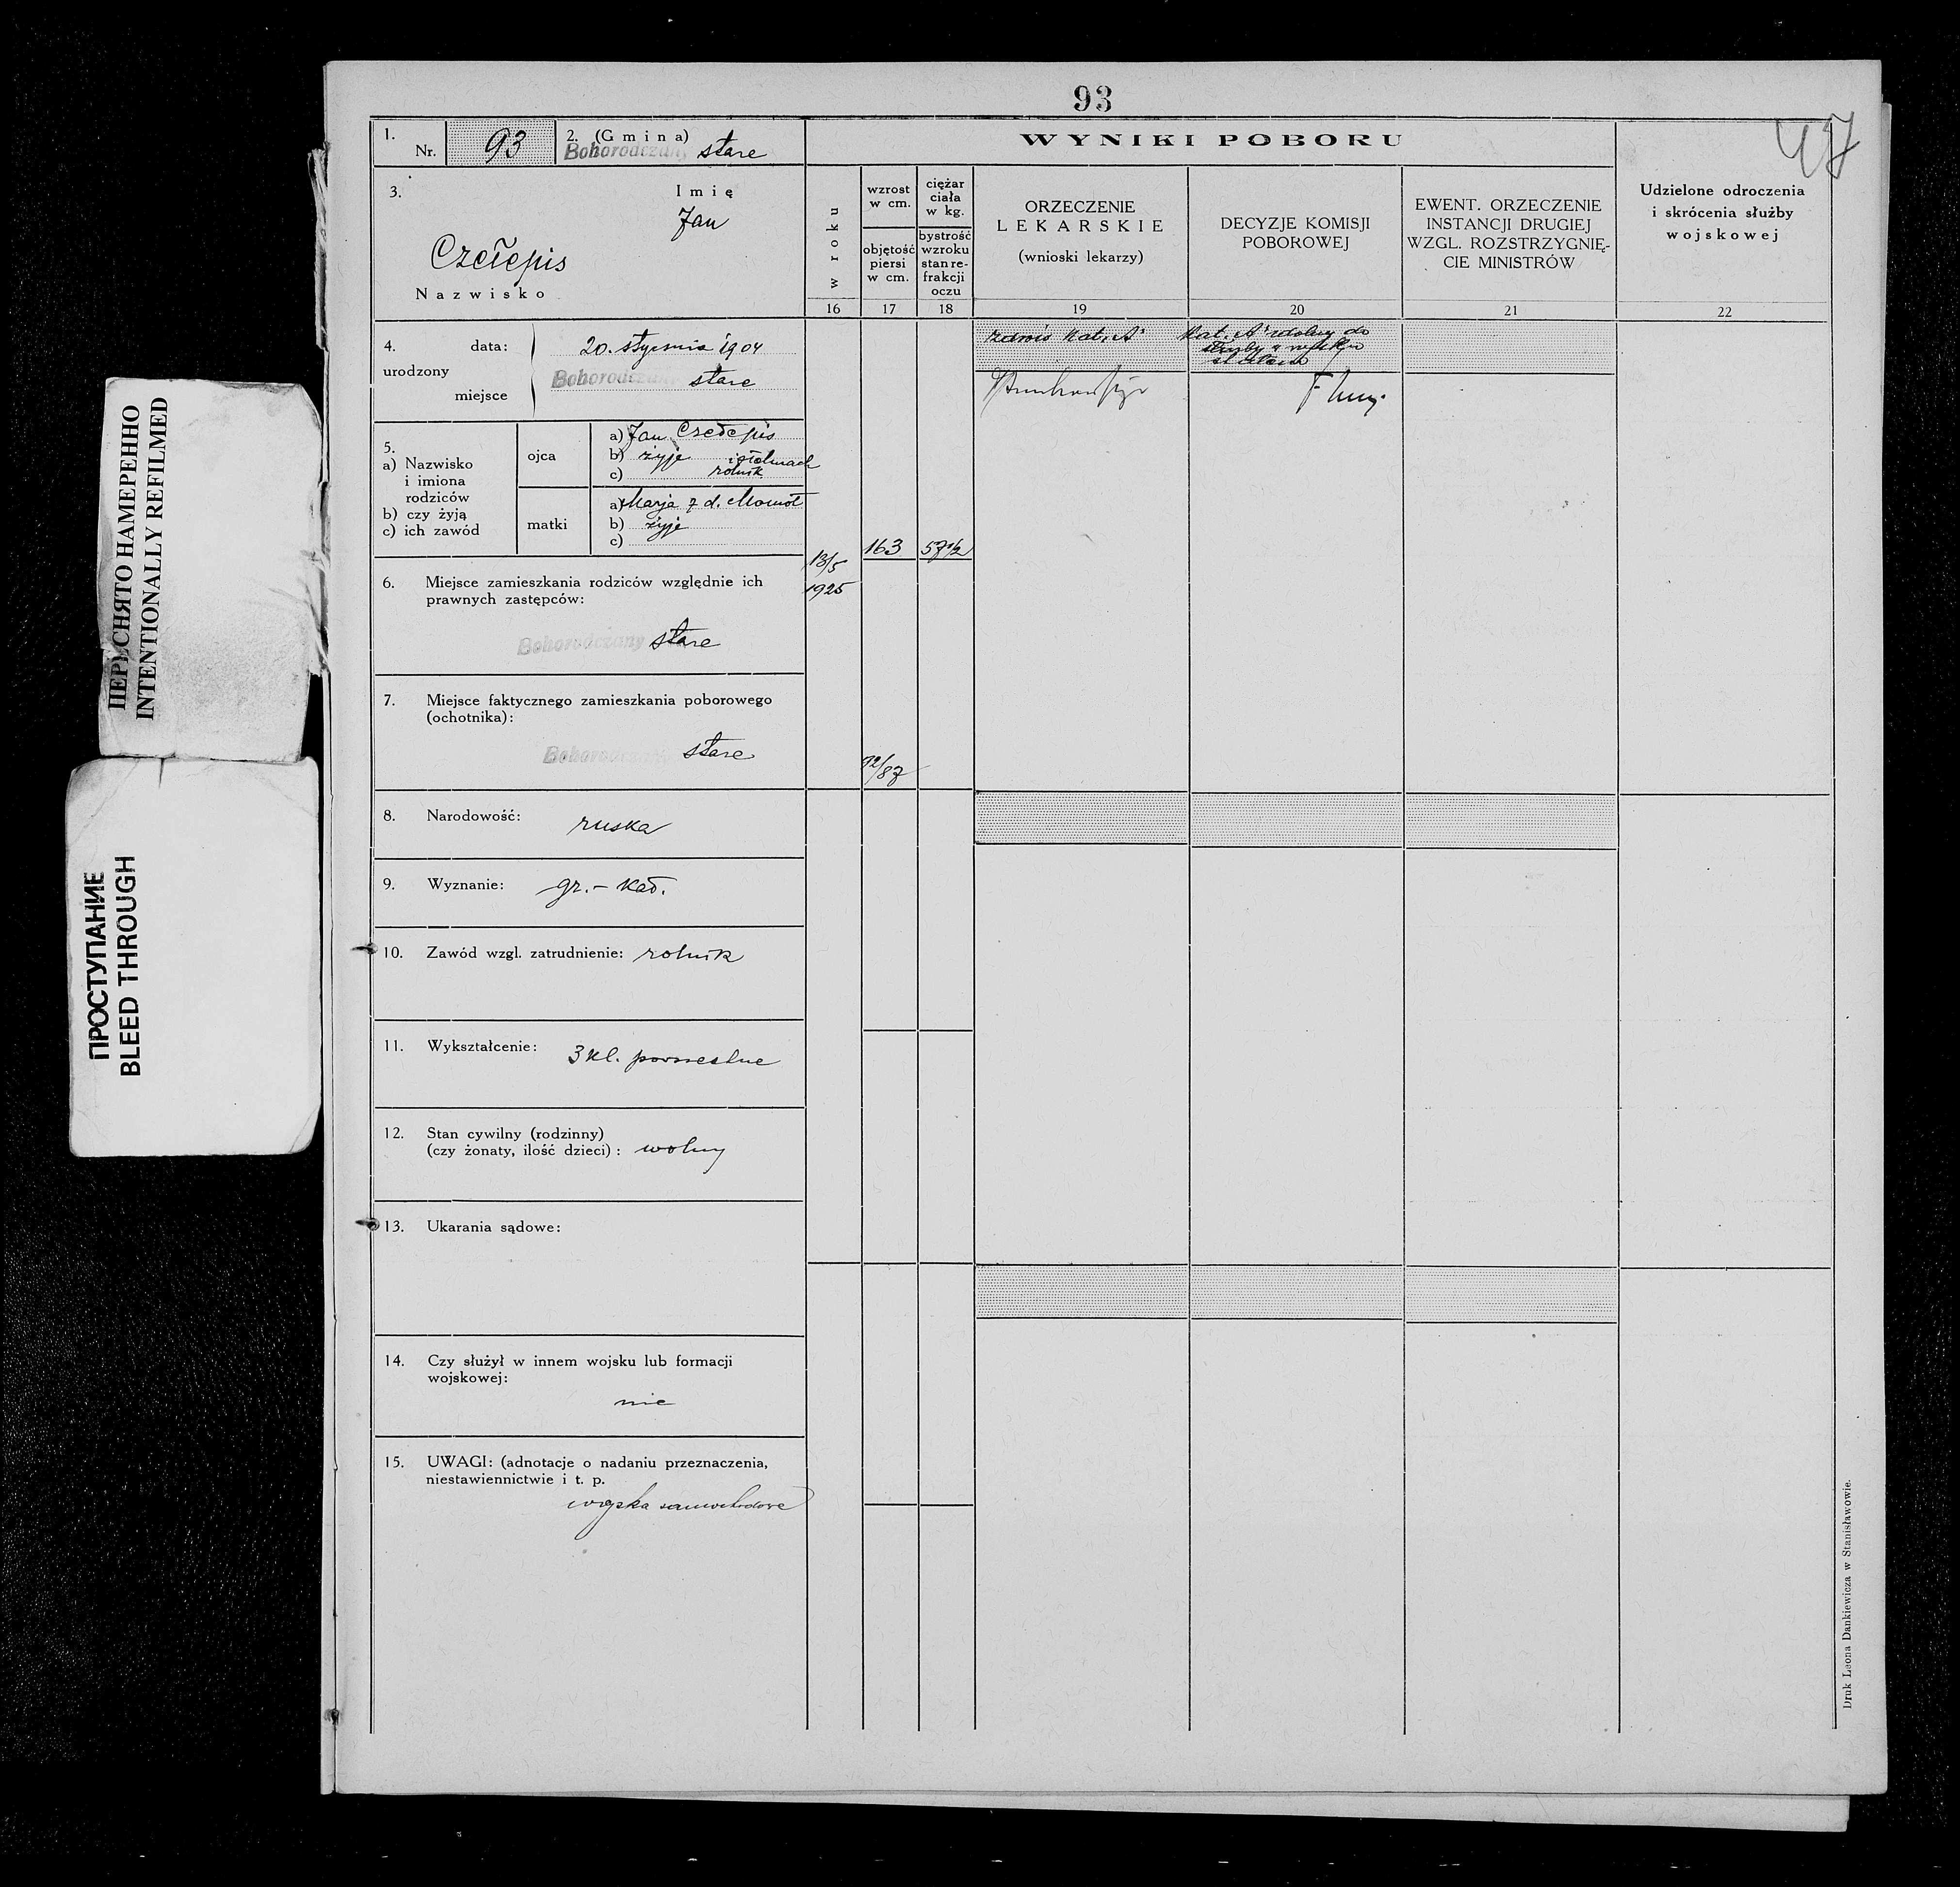 93
47
1.
Nr. 93
2. (Gmina)
Bohorodczany stare
WYNIKI POBORU
3.
Imię
Jan
Czełepis
Nazwisko
w roku
wzrost
w cm.
objętość
piersi
w cm.
ciężar
ciała
w kg.
bystrość
wzroku
stan re-
frakcji
oczu
ORZECZENIE
LEKARSKIE
(wnioski lekarzy)
DECYZJE KOMISJI
POBOROWEJ
EWENT. ORZECZENIE
INSTANCJI DRUGIEJ
WZGL. ROZSTRZYGNIĘ-
CIE MINISTRÓW
Udzielone odroczenia
i skrócenia służby
wojskowej
16 17 18 19 20 21 22
4.
urodzony
data: 20. stycznia 1904
miejsce
Bohorodczany stare
kat. A
Kat. "A" zdolny do
służby w wojsku
stałem
5.
a) Nazwisko
i imiona
rodziców
b) czy żyją
c) ich zawód
ojca
a) Jan Czełepis
b) żyje
c) rolnik
matki
a) Marja z d. Momot
b) żyje
c)
13/5
1925
163
57 1/2
92/87
6. Miejsce zamieszkania rodziców względnie ich
prawnych zastępców:
Bohorodczany stare
7. Miejsce faktycznego zamieszkania poborowego
(ochotnika):
Bohorodczany stare
8. Narodowość: ruska
9. Wyznanie: gr.-kat.
10. Zawód wzgl. zatrudnienie: rolnik
11. Wykształcenie: 3 kl. powszechne
12. Stan cywilny (rodzinny)
(czy żonaty, ilość dzieci): wolny
13. Ukarania sądowe:
14. Czy służył w innem wojsku lub formacji
wojskowej:
nie
15. UWAGI: (adnotacje o nadaniu przeznaczenia,
niestawiennictwie i t. p.
wojska samochodowe
Druk Leona Dankiewicza w Stanisławowie.
ПЕРЕСНЯТО НАМЕРЕННО
INTENTIONALLY REFILMED
ПРОСТУПАНИЕ
BLEED THROUGH